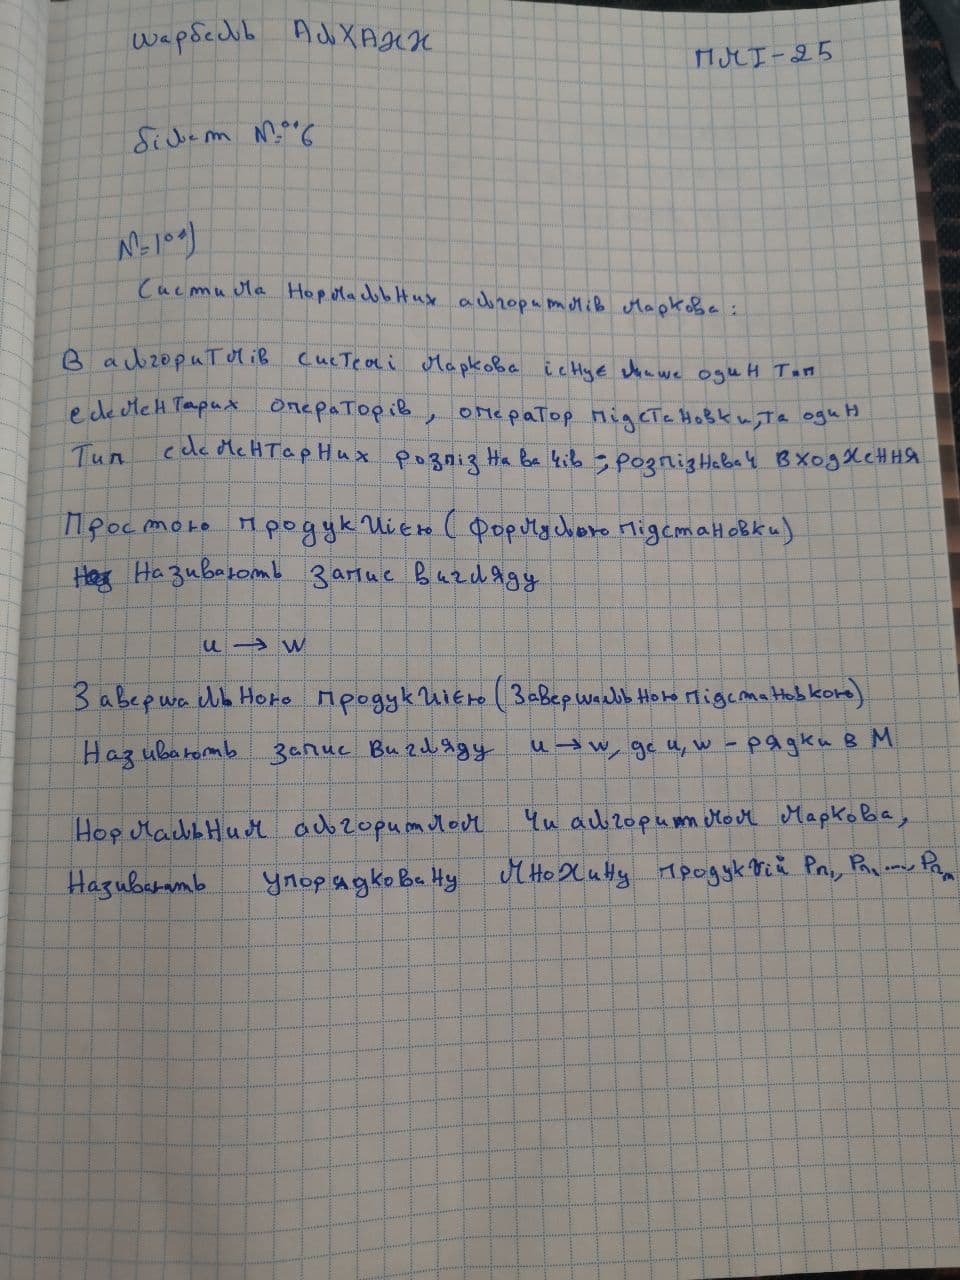 Шарбель АлХАЖЖ
ПМІ-25
білет №6
№1)
Систима Нормальних алгоритмів маркова:
В алгоритмів системі маркова існує лише один тип
елементарих операторів, оператор підстановки, та один
Тип елементарних розпізнавачів ; розпізнавач входження
Простою продукцією (формулою підстановки)
Називають запис вигляду
u → w
Завершальною продукцією (завершальною підстановкою)
Називають запис вигляду u → w, де u, w - рядки в М
Нормальним алгоритмом чи алгоритмом маркова,
Називають упорядковану множину продукцій Pn₁, Pn, ..., Pnₘ